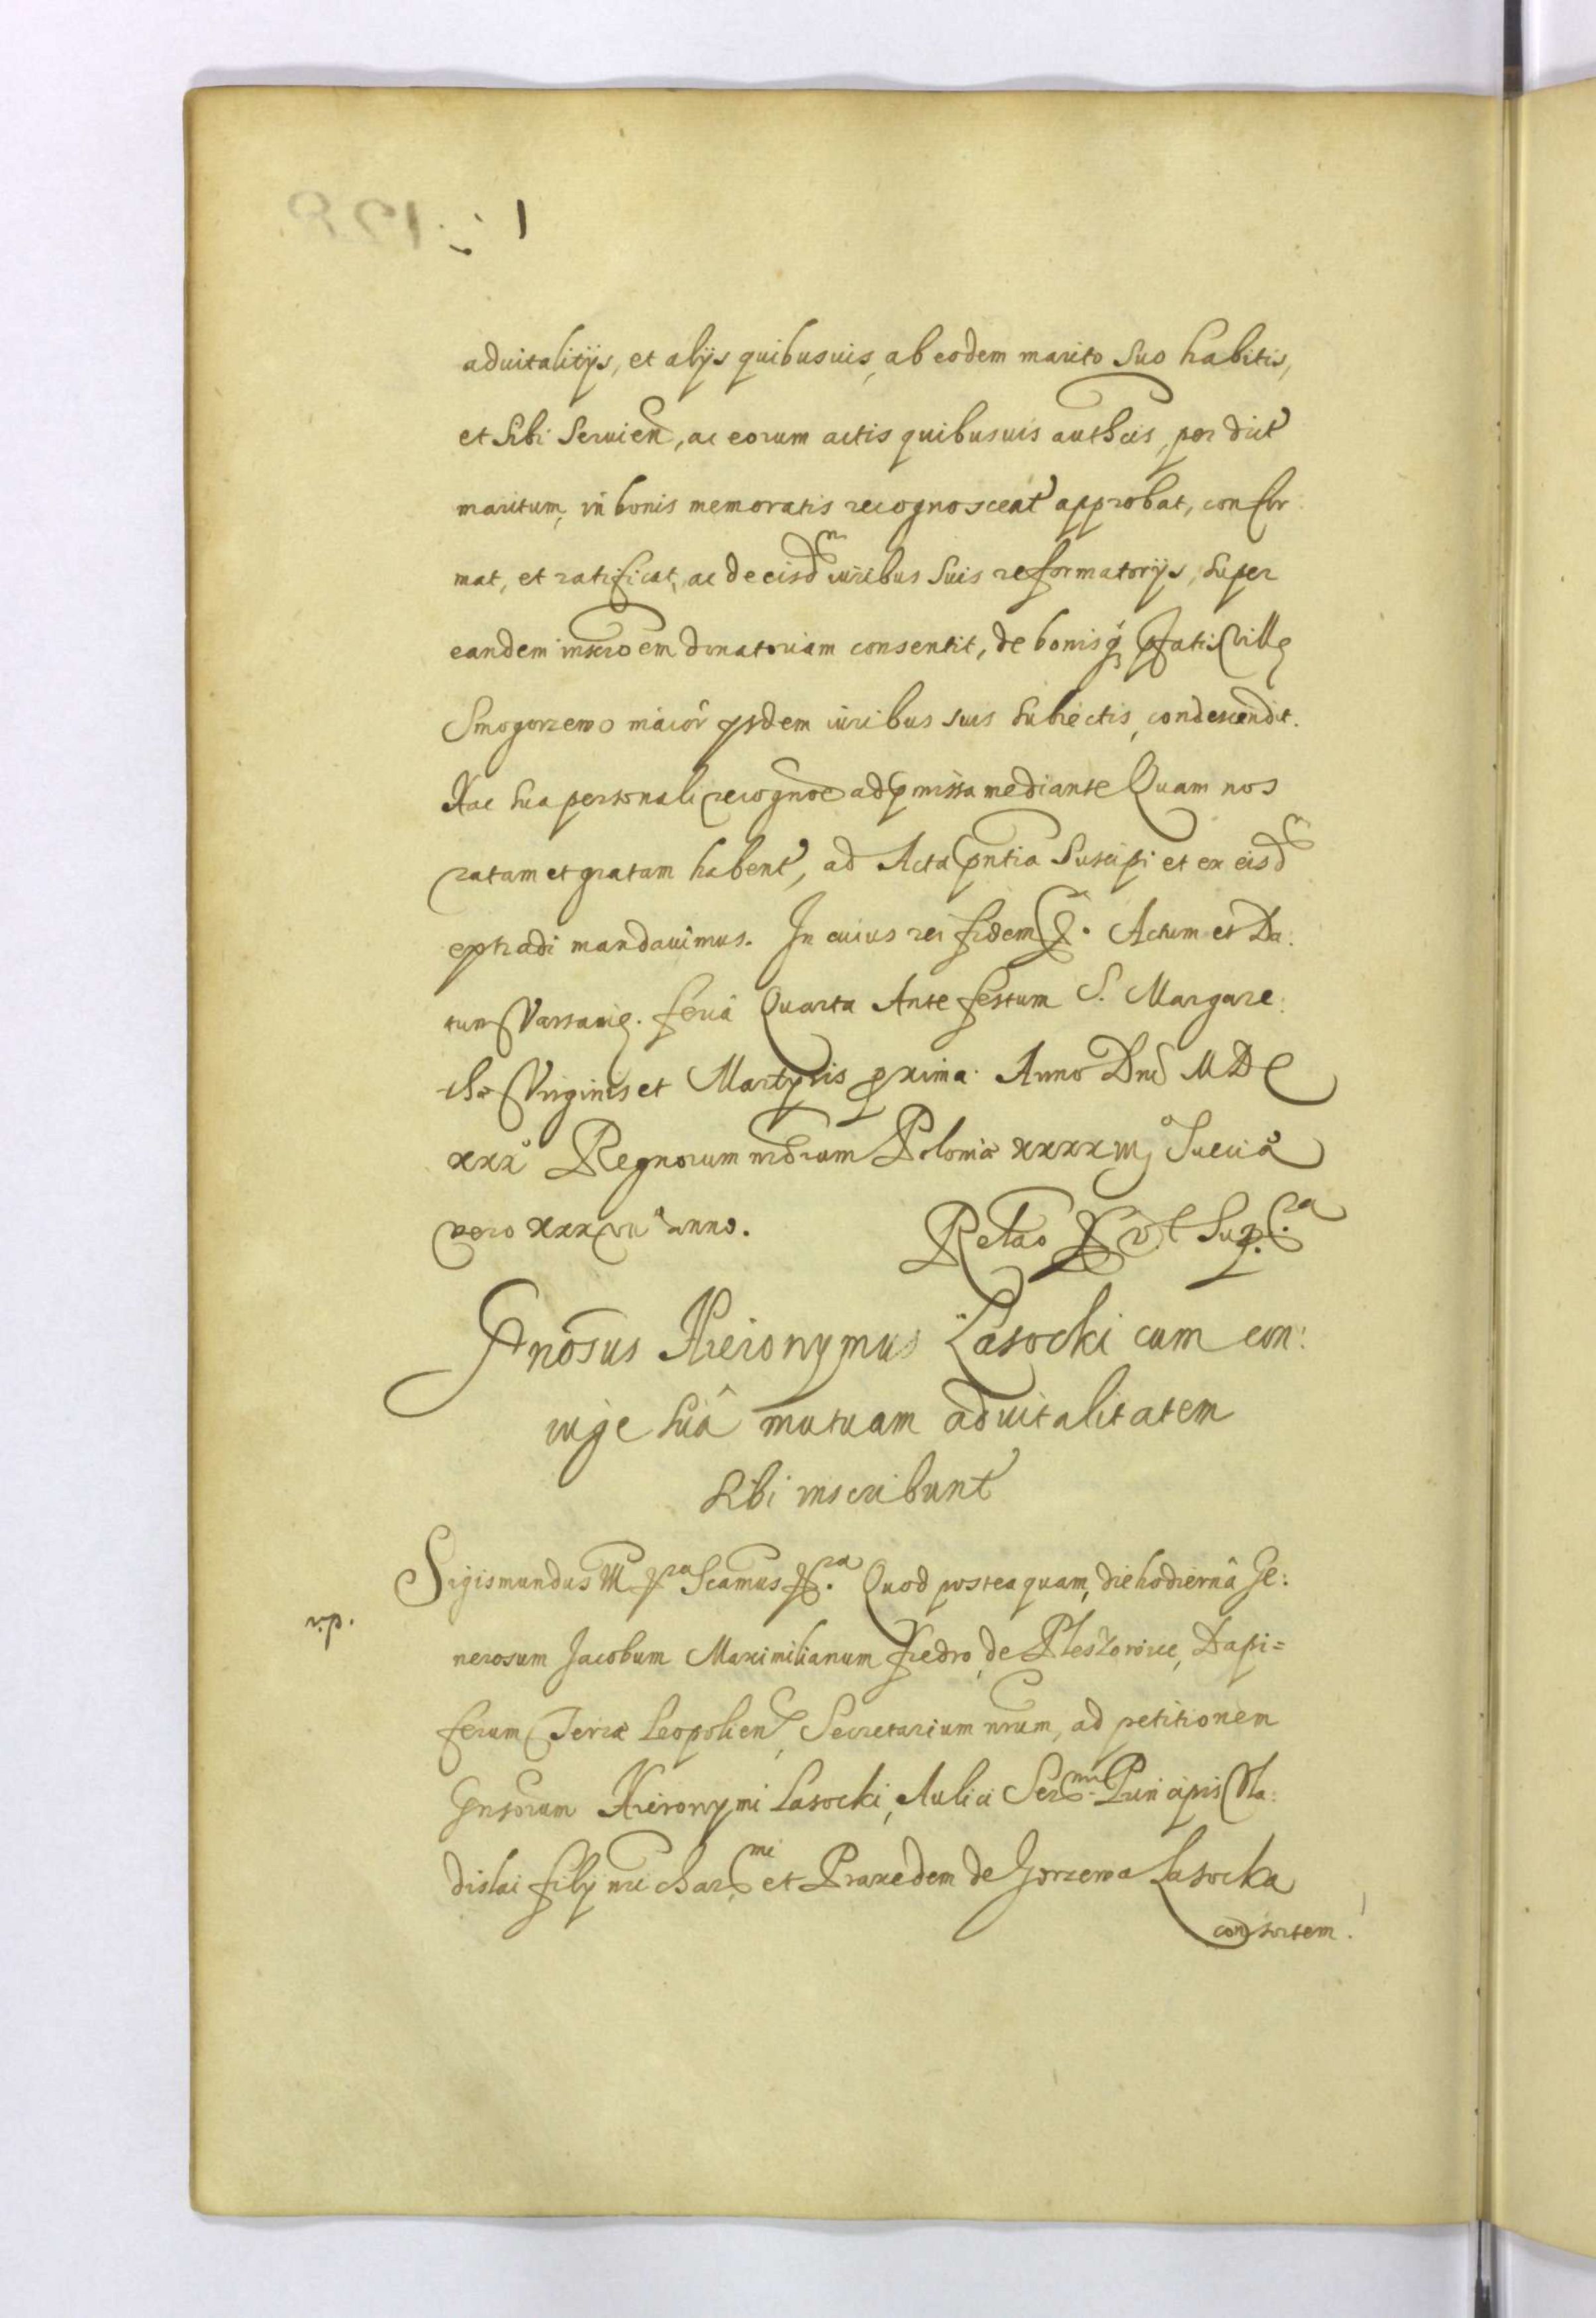 aduitalitijs, et alijs quibusuis, ab eodem marito suo habitis,
et sibi seruien, ac eorum actis quibusuis authcis, per dict
maritum, in bonis memoratis recognoscent approbat, confir:
mat, et ratificat, ac de eisdm iuribus suis reformatorijs, super
eandem inscroem donatoriam consentit, de bonisq pfatis villę
Smogorzewo maior ipsdem iuribus suis subiectis, condescendit.
Hac sua personali recognoe ad pmissa mediante Quam nos
ratam et gratam habent, ad Acta pntia suscipi et ex eisdm
extradi mandauimus. In cuius rei fidem &. Actum et Da:
tum Varsauię. feria Quarta Ante festum S. Margare:
thæ Virginis et Martyris pxima. Anno Dni MDC
xxx Regnorum nrorum Poloniæ xxxxiij Sueciæ
vero xxxvii anno.
Relao vt supra
Gnosus Hieronymus Lasocki cum con:
iuge suâ mutuam aduitalitatem
sibi inscribunt
Sigismundus III &ra Scamus &ra. Quod posteaquam, die hodiernâ Ge:
nerosum Jacobum Maximilianum Fredro, de Pleszowice, Dapi=
ferum Terræ Leopolien, Secretarium nrum, ad petitionem
Gnsorum Hieronymi Lasocki, Aulici Sermi Principis Vla:
dislai filij nri charmi et Praxedem de Gorzewa Lasocka
consortem.